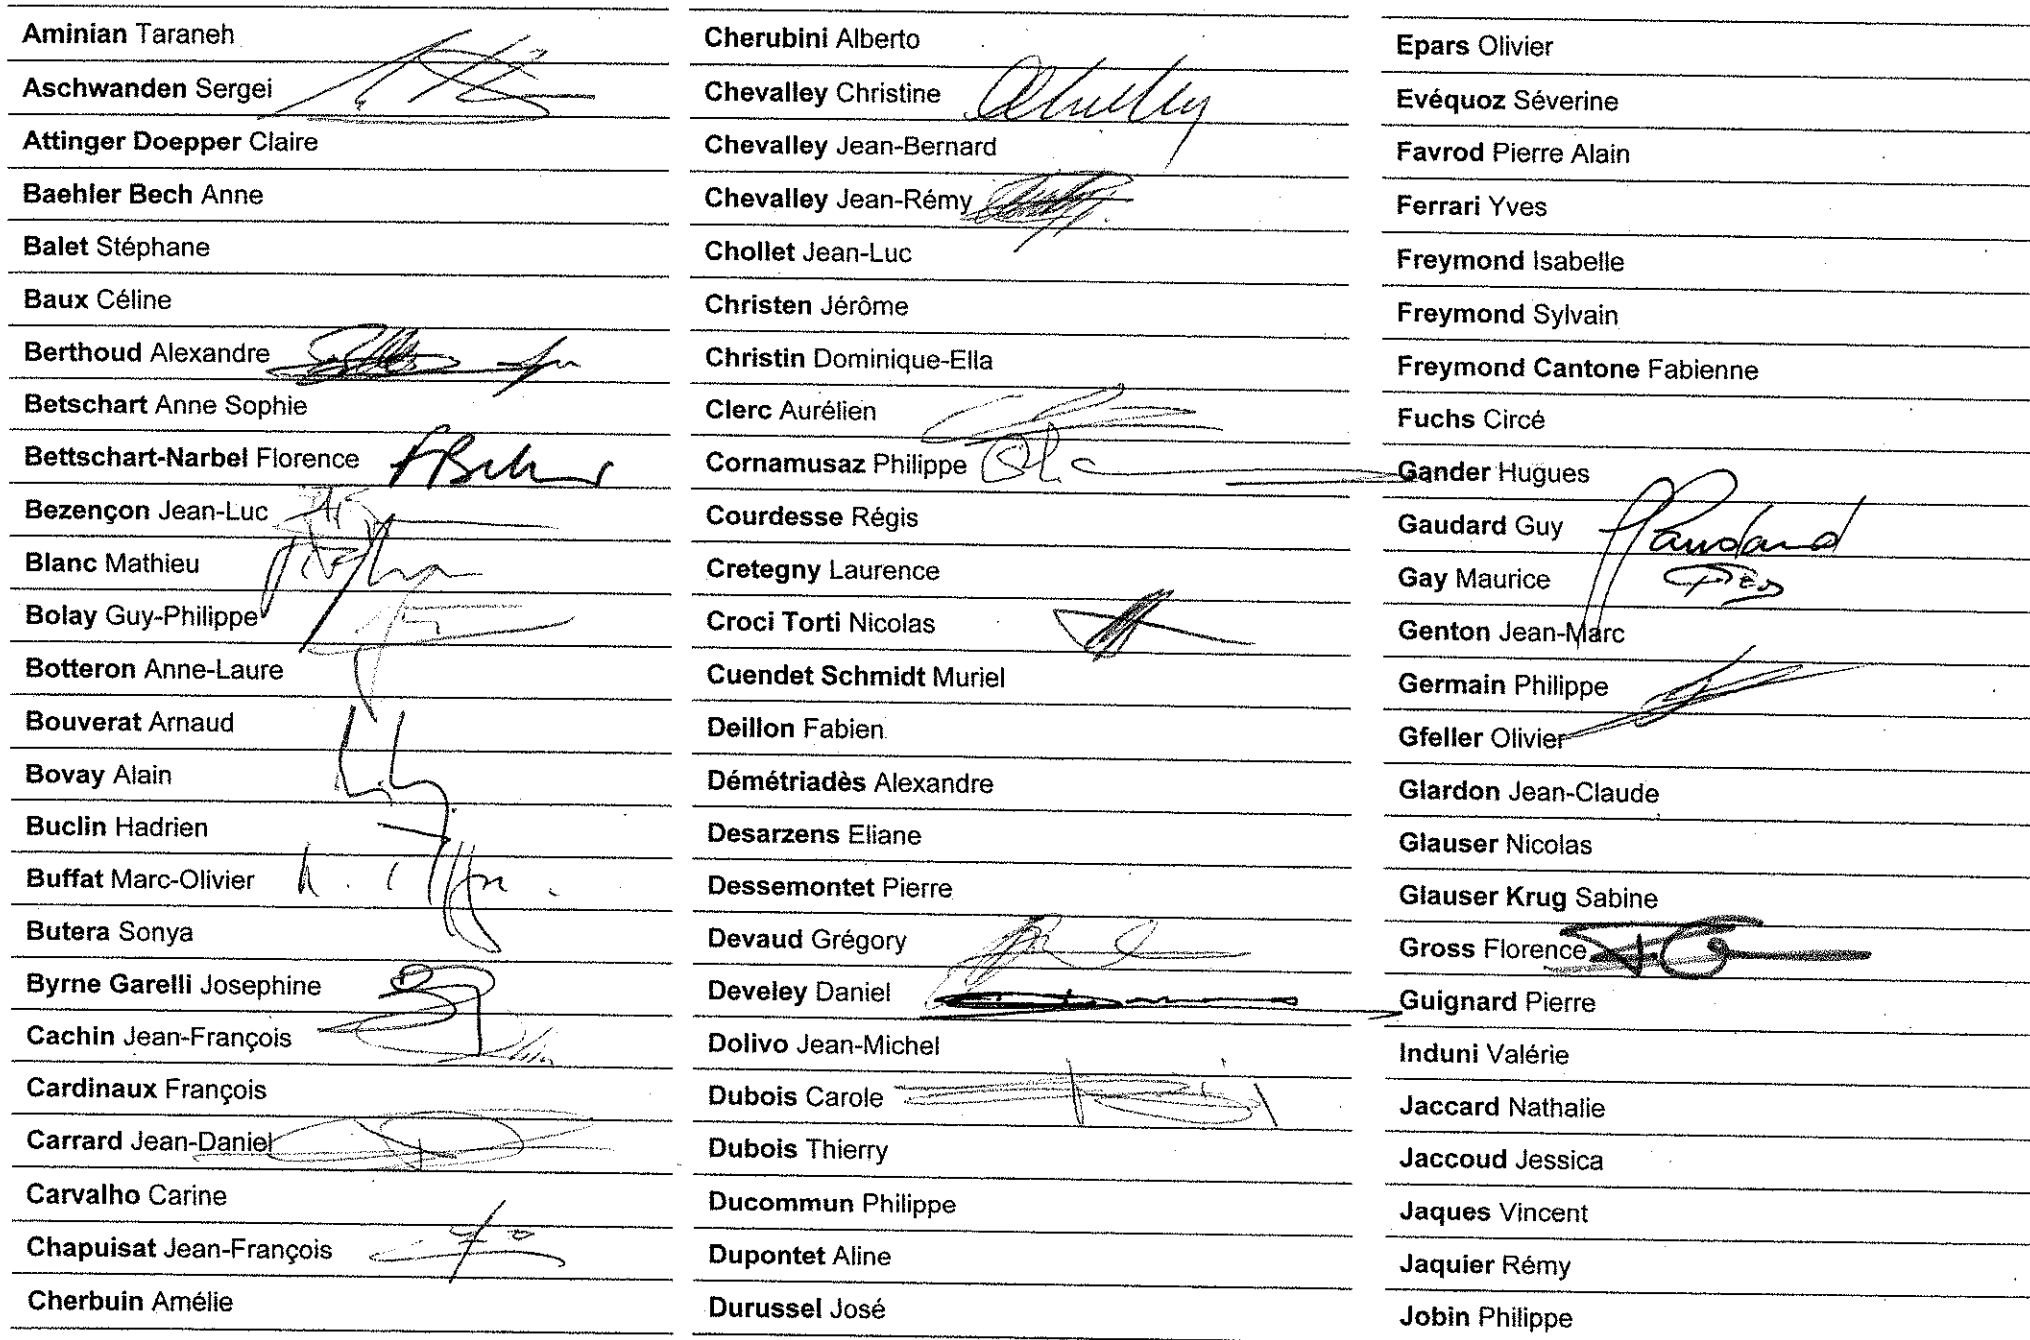 Aminian Taraneh
Aschwanden Sergei
Attinger Doepper Claire
Baehler Bech Anne
Balet Stéphane
Baux Céline
Berthoud Alexandre
Betschart Anne Sophie
Bettschart-Narbel Florence
Bezençon Jean-Luc
Blanc Mathieu
Bolay Guy-Philippe
Botteron Anne-Laure
Bouverat Arnaud
Bovay Alain
Buclin Hadrien
Buffat Marc-Olivier
Butera Sonya
Byrne Garelli Josephine
Cachin Jean-François
Cardinaux François
Carrard Jean-Daniel
Carvalho Carine
Chapuisat Jean-François
Cherbuin Amélie
Cherubini Alberto
Chevalley Christine
Chevalley Jean-Bernard
Chevalley Jean-Rémy
Chollet Jean-Luc
Christen Jérôme
Christin Dominique-Ella
Clerc Aurélien
Cornamusaz Philippe
Courdesse Régis
Cretegny Laurence
Croci Torti Nicolas
Cuendet Schmidt Muriel
Deillon Fabien
Démétriadès Alexandre
Desarzens Eliane
Dessemontet Pierre
Devaud Grégory
Develey Daniel
Dolivo Jean-Michel
Dubois Carole
Dubois Thierry
Ducommun Philippe
Dupontet Aline
Durussel José
Epars Olivier
Evéquoz Séverine
Favrod Pierre Alain
Ferrari Yves
Freymond Isabelle
Freymond Sylvain
Freymond Cantone Fabienne
Fuchs Circé
Gander Hugues
Gaudard Guy
Gay Maurice
Genton Jean-Marc
Germain Philippe
Gfeller Olivier
Glardon Jean-Claude
Glauser Nicolas
Glauser Krug Sabine
Gross Florence
Guignard Pierre
Induni Valérie
Jaccard Nathalie
Jaccoud Jessica
Jaques Vincent
Jaquier Rémy
Jobin Philippe